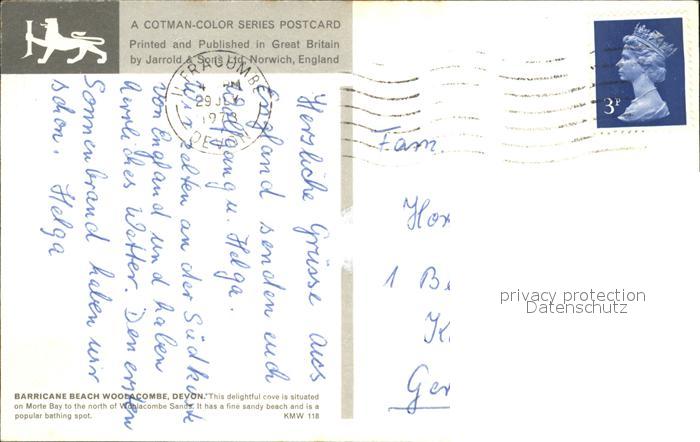 A COTMAN-COLOR SERIES POSTCARD
Printed and Published in Great Britain
by Jarrold & Sons Ltd, Norwich, England
ILFRACOMBE
29 JU
197
DEVON
3P
Herzliche Grüsse aus
England senden euch
Wolfgang u. Helga.
Wir zelten an der Südküste
von England und haben
herrliches Wetter. Den ersten
Sonnenbrand haben wir
schon. Helga
Fam.
Hor
1 Be
K
Ger
privacy protection
Datenschutz
BARRICANE BEACH WOOLACOMBE, DEVON. This delightful cove is situated
on Morte Bay to the north of Woolacombe Sands. It has a fine sandy beach and is a
popular bathing spot. KMW 118